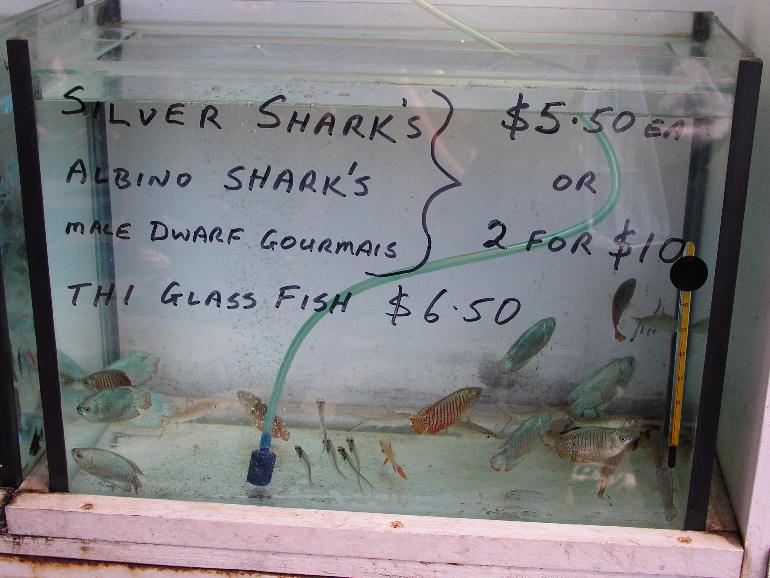 SILVER SHARK'S } $5.50 EA
ALBINO SHARK'S OR
MALE DWARF GOURMAIS 2 FOR $10
THI GLASS FISH $6.50